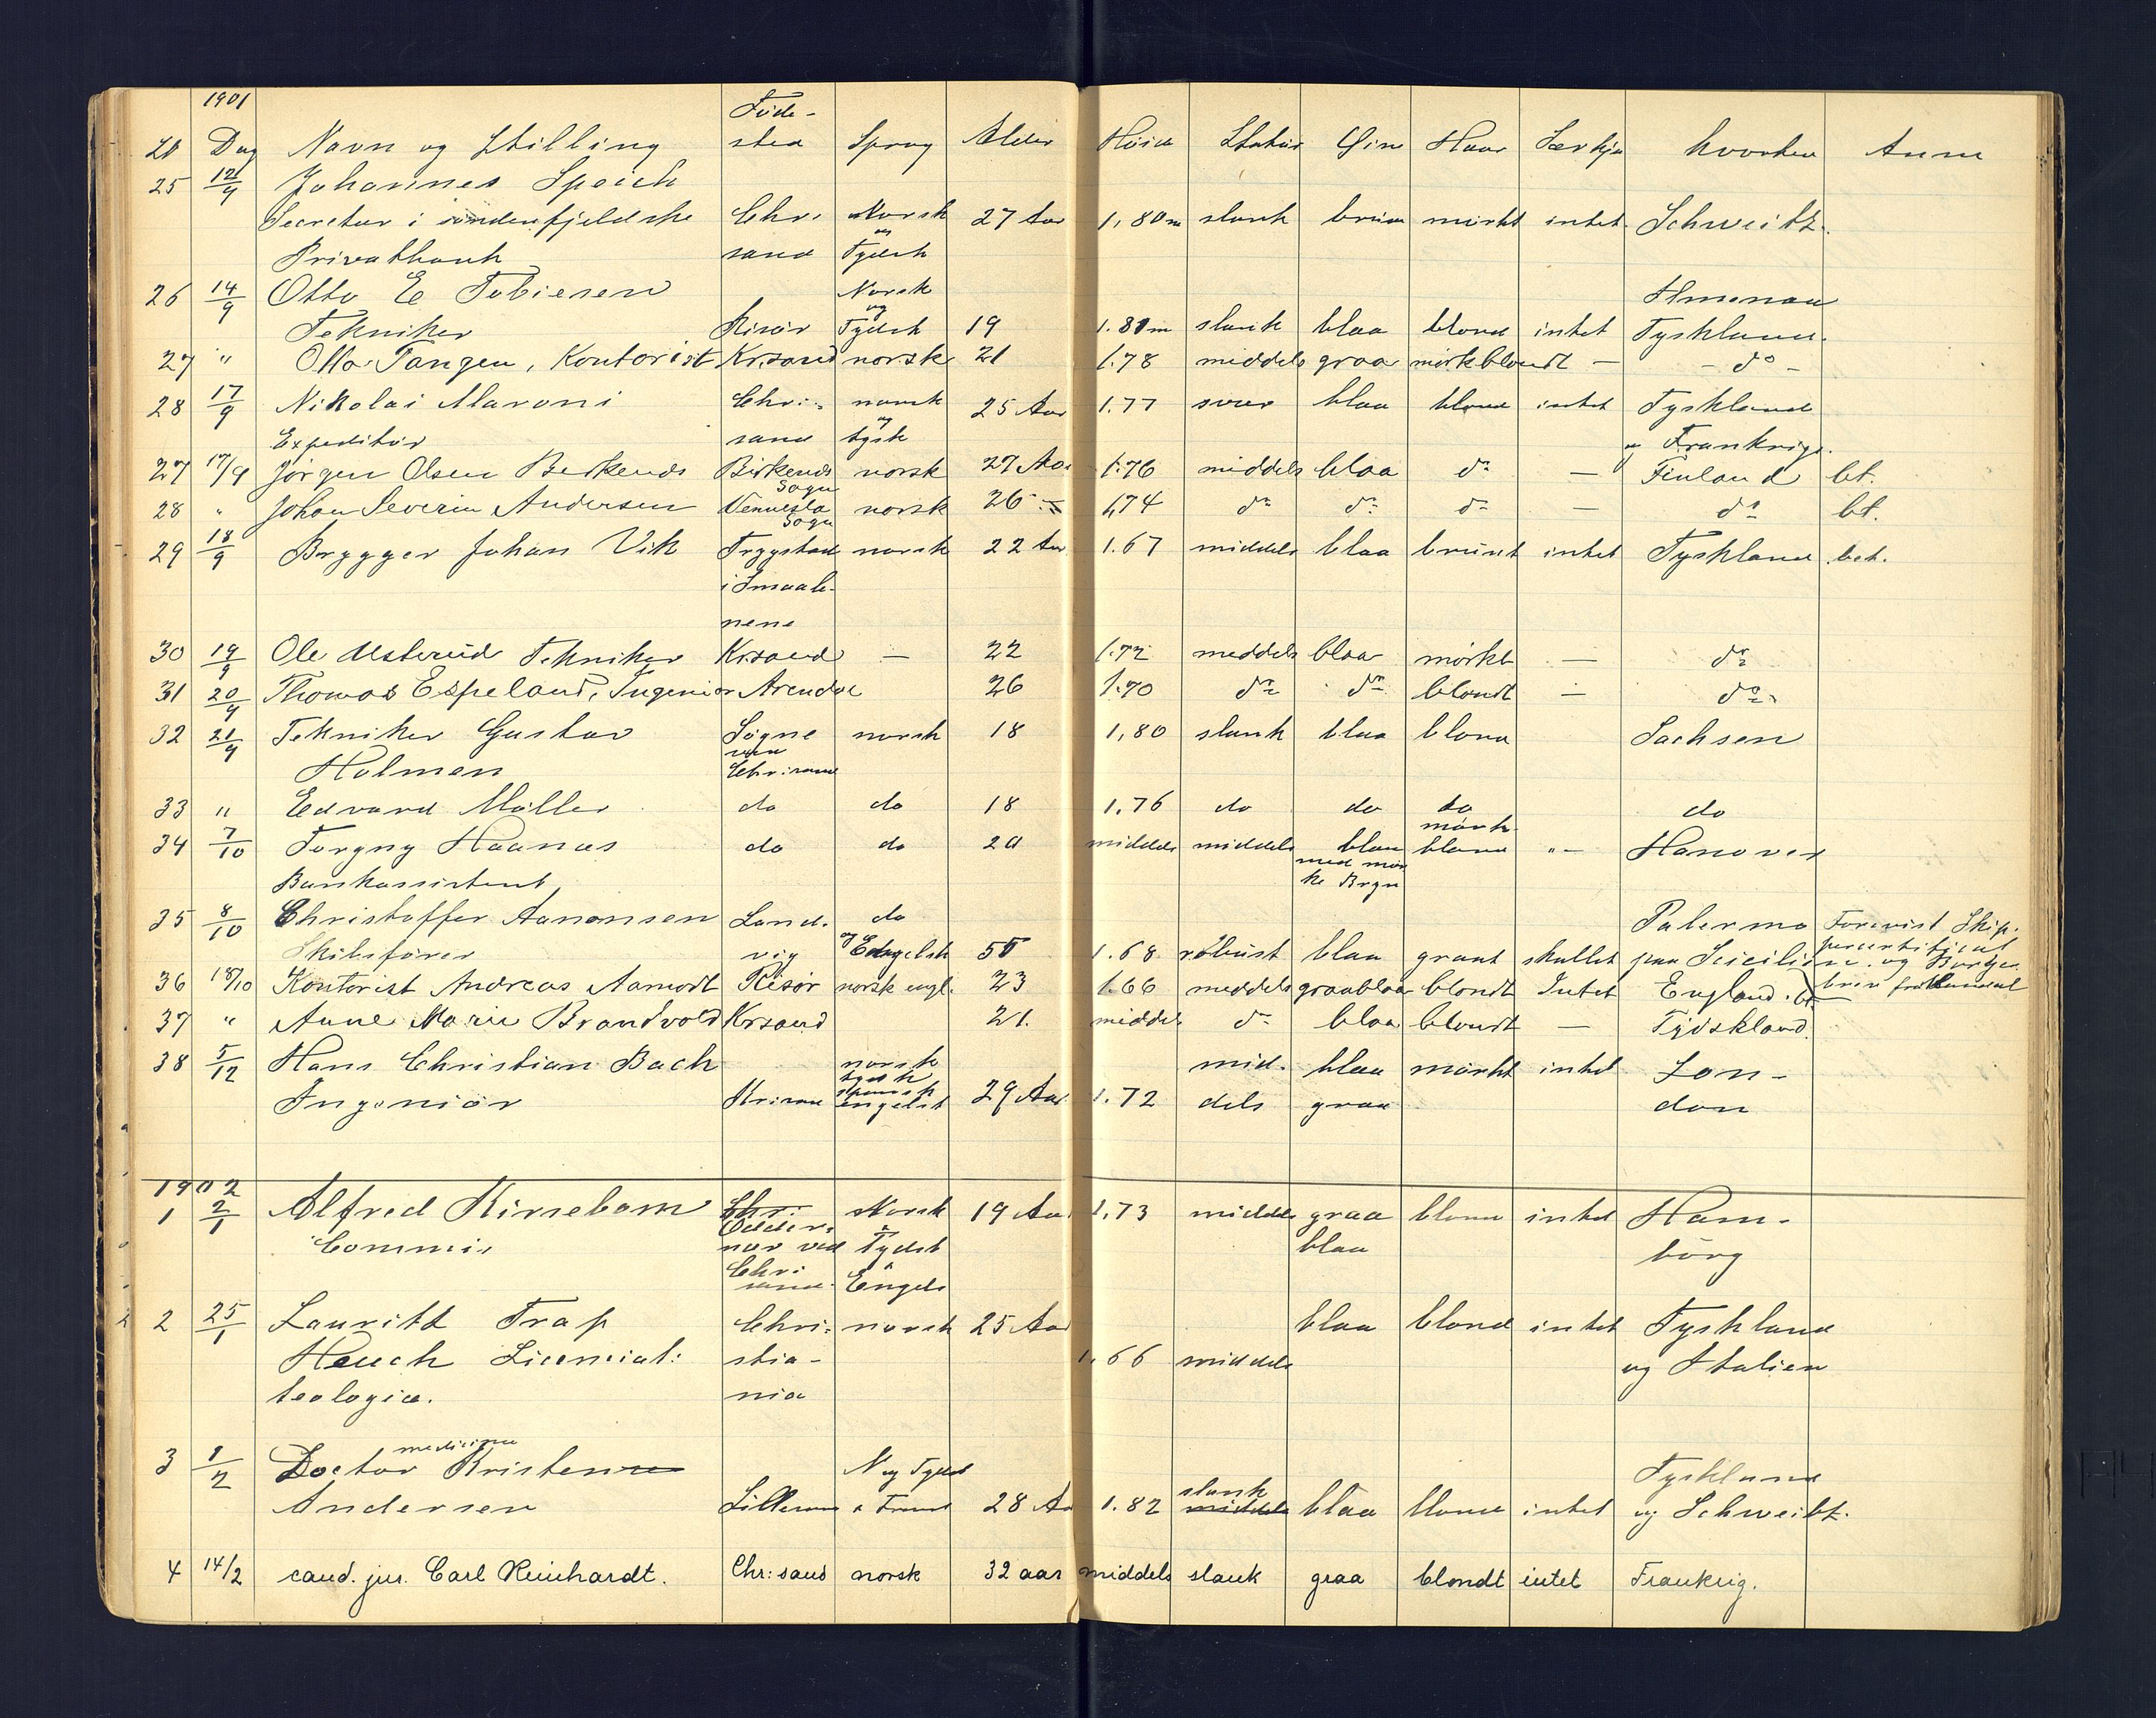 1901
Dag Navn og Stilling Føde-sted Sprog Alder Høide Statur Øine Haar Særkj hvorhen Anm
25 12/9 Johannes Speich
Secretær i söndenfjeldske Chr. Norsk 27 Aar 1,80 m slank brun mørkt intet Schweitz.
Privatbank sand og Tydsk
26 14/9 Otto E Tobiesen Norsk Ilmenau
Tekniker Risør og Tydsk 19 1.81 m slank blaa blond intet Tyskland.
27 " Otto Tangen, Kontorist Krsand norsk 21 1.78 middels graa mörkblondt — - do -
28 17/9 Nikolai Maroni Chri- norsk 25 Aar 1.77 svær blaa blond intet Tyskland
Expeditør sand og tysk og Frankrige.
27 17/9 Jörgen Olsen Berkends Birkends Sogn norsk 27 Aar 1.76 middels blaa do — Finland bt.
28 " Johan Severin Andersen Vennesla Sogn norsk 26 1,74 do do do — do bt.
29 18/9 Brygger Johan Vik Trygstad norsk 22 Aar 1.67 middels blaa brunt intet Tyskland bet.
i Smaale-
nene
30 19/9 Ole Usterud Tekniker Krsand — 22 1.72 meddels blaa mörkt — do
31 20/9 Thomas Espeland, Ingeniør Arendal 26 1.70 do do blondt — do
32 21/9 Tekniker Gustav Søgne norsk 18 1,80 slank blaa blond Sachsen
Holmen ved Chrisand
33 " Edvard Møller do do 18 1.76 do do do do
34 7/10 Torgny Haanas do do 20 middels middels blaa mørk blond "- Hanover
Bankassistent med mør ke Bryn
35 8/10 Christoffer Aanonsen Land. do Palermo Forevist Skip.
Skibsfører vig og Engelsk 55 1.68 robust blaa graat skallet paa Sicilien. og Borger
36 18/10 Kontorist Andreas Aamodt Risör norsk engl. 23 1.66 meddels graablaa blondt Intet England. bt
37 " Anne Marie Brandvold Krsand 21. middels do blaa blondt — Tÿdskland.
38 5/12 Hans Christian Bach norsk mid- blaa mørkt intet Lon-
tysk
spansk
Ingeniør Krisand engelsk 29 Aar 1.72 dels graa don
1902
1 2/1 Alfred Kirsebom Chri- Norsk 19 Aar 1.73 middels graa blond intet Ham-
Commis Odder- nær ved Tydsk blaa burg
Chri sand. Engels
2 25/1 Lauritz Trap Chri- norsk 25 Aar blaa blond intet Tyskland
Heuch Licenciat: stia- 1.66 middels og Italien
teologiæ. nia
3 1/2 Doctor medicinæ Kristen N og Tydsk Tyskland
Andersen Lillesand & Frans 28 Aar 1.82 slank middels blaa blond intet og Schweitz.
4 14/2 cand. jur. Carl Reinhardt. Chr:sand norsk 32 aar middels slank graa blondt intet Frankrig.